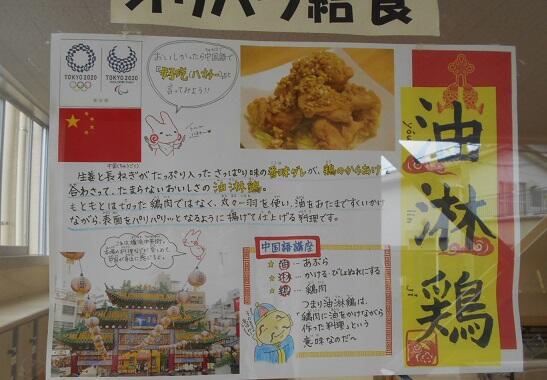 オリパラ給食
TOKYO 2020
TOKYO 2020
おいしかったら中国語で
「好吃(ハオチー)」と
言ってみよう!!
生姜と長ねぎがたっぷり入ったさっぱり味の香味ダレが、鶏のからあげと
合わさって、たまらないおいしさの油淋鶏。
もともとは切った鶏肉ではなく、丸々一羽を使い、油をおたまですくいかけ
ながら、表面をパリパリッとなるように揚げて仕上げる料理です。
中国語講座
★油…あぶら
★淋…かける・びしょぬれにする
★鶏…鶏肉
つまり油淋鶏は、
「鶏肉に油をかけながら
作った料理」という
意味なのだ〜
油
淋
鶏
you
lin
ji